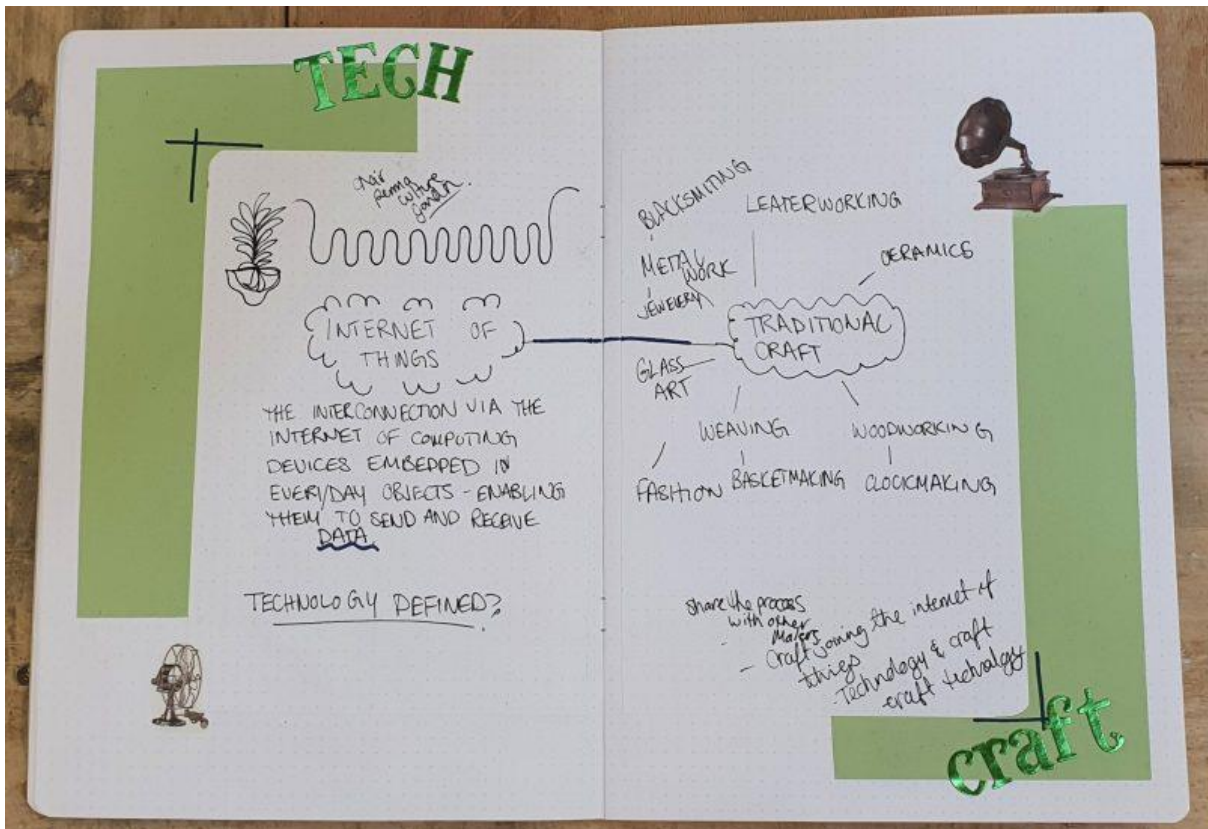 TECH
perma
culture
INTERNET OF
THINGS
THE INTERCONNECTION VIA THE
INTERNET OF COMPUTING
DEVICES EMBEDDED IN
EVERYDAY OBJECTS - ENABLING
THEM TO SEND AND RECEIVE
DATA
TECHNOLOGY DEFINED?
BLACKSMITING
LEATERWORKING
METAL
WORK
JEWELERY
CERAMICS
TRADITIONAL
CRAFT
GLASS
ART
WEAVING
WOODWORKING
FASHION
BASKETMAKING
CLOCKMAKING
share the process
with other
Makers
- Craft joining the internet of
things
- Technology & craft
craft technology
craft